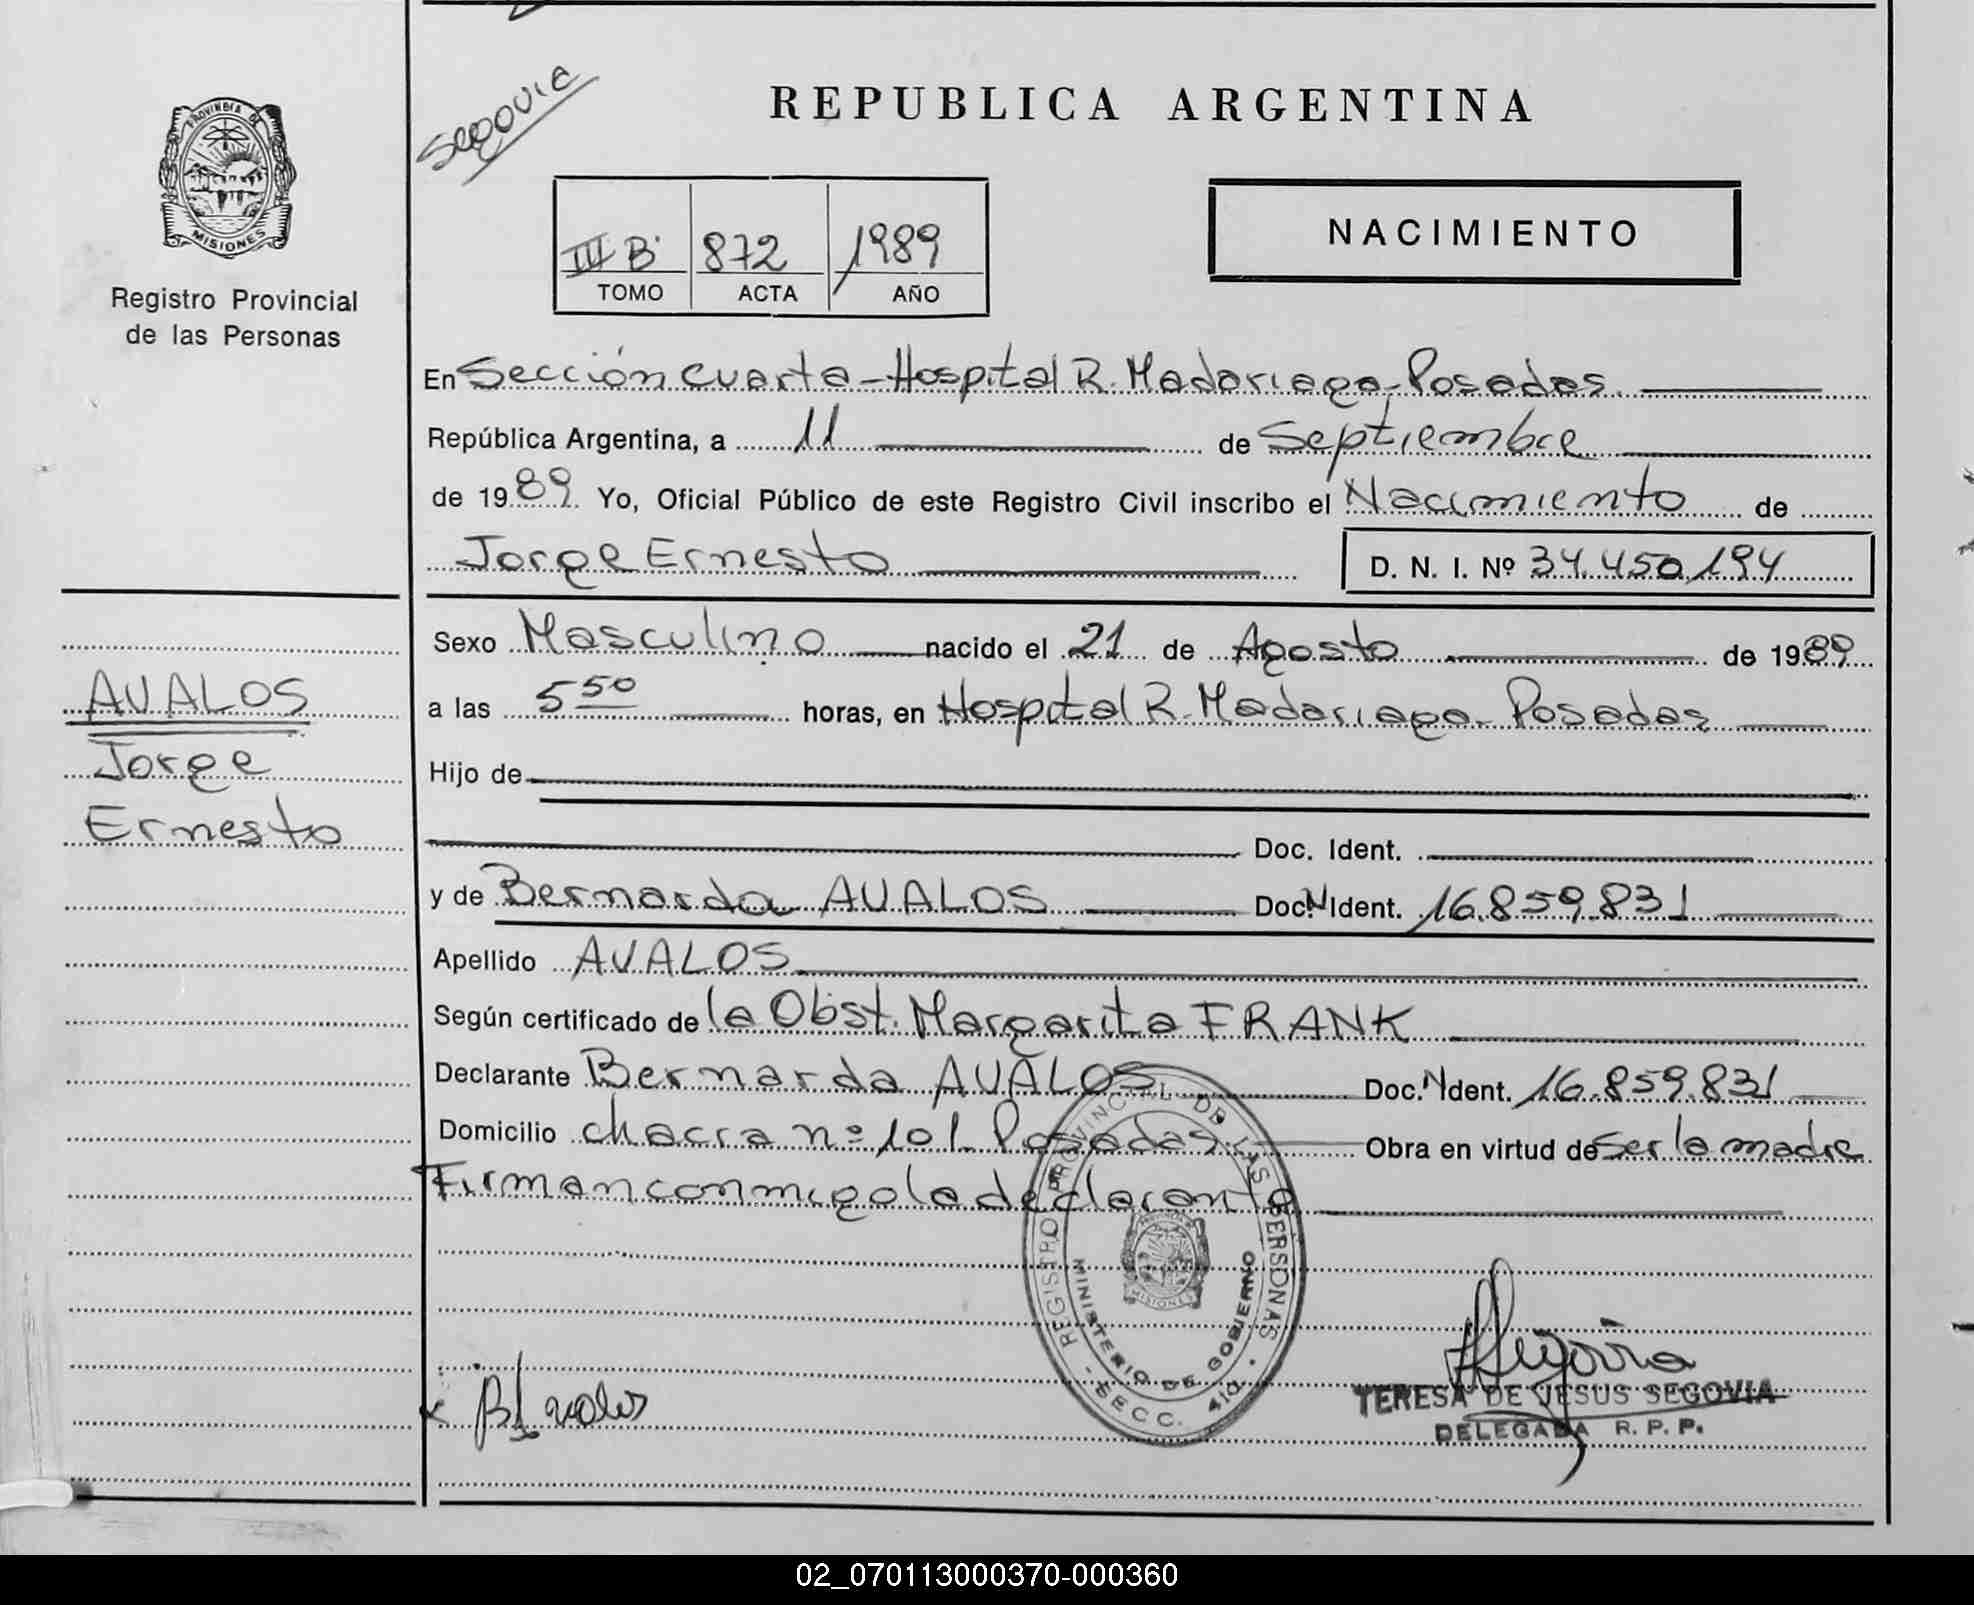 Segovia
REPUBLICA ARGENTINA
PROVINCIA DE
MISIONES
Registro Provincial
de las Personas
III B 872 1989
TOMO ACTA AÑO
NACIMIENTO
En Sección Cuarta - Hospital R. Madariaga - Posadas.
República Argentina, a 11 de Septiembre
de 1989. Yo, Oficial Público de este Registro Civil inscribo el Nacimiento de
Jorge Ernesto D. N. I. Nº 34.450.194
Sexo Masculino nacido el 21 de Agosto de 1989
a las 5 50 horas, en Hospital R. Madariaga - Posadas
Hijo de
Doc. Ident.
y de Bernarda AVALOS Doc. N Ident. 16.859.831
Apellido AVALOS
Según certificado de la Obst. Margarita FRANK
Declarante Bernarda AVALOS Doc. N Ident. 16.859.831
Domicilio chacra nº 101. Posadas. Obra en virtud de Ser la madre
Firman conmigo la declarante
AVALOS
Jorge
Ernesto
REGISTRO PROVINCIAL DE LAS PERSONAS
MINISTERIO DE GOBIERNO
MISIONES
SECC. 4ta.
x B Avalos
Segovia
TERESA DE JESUS SEGOVIA
DELEGADA R. P. P.
02_070113000370-000360